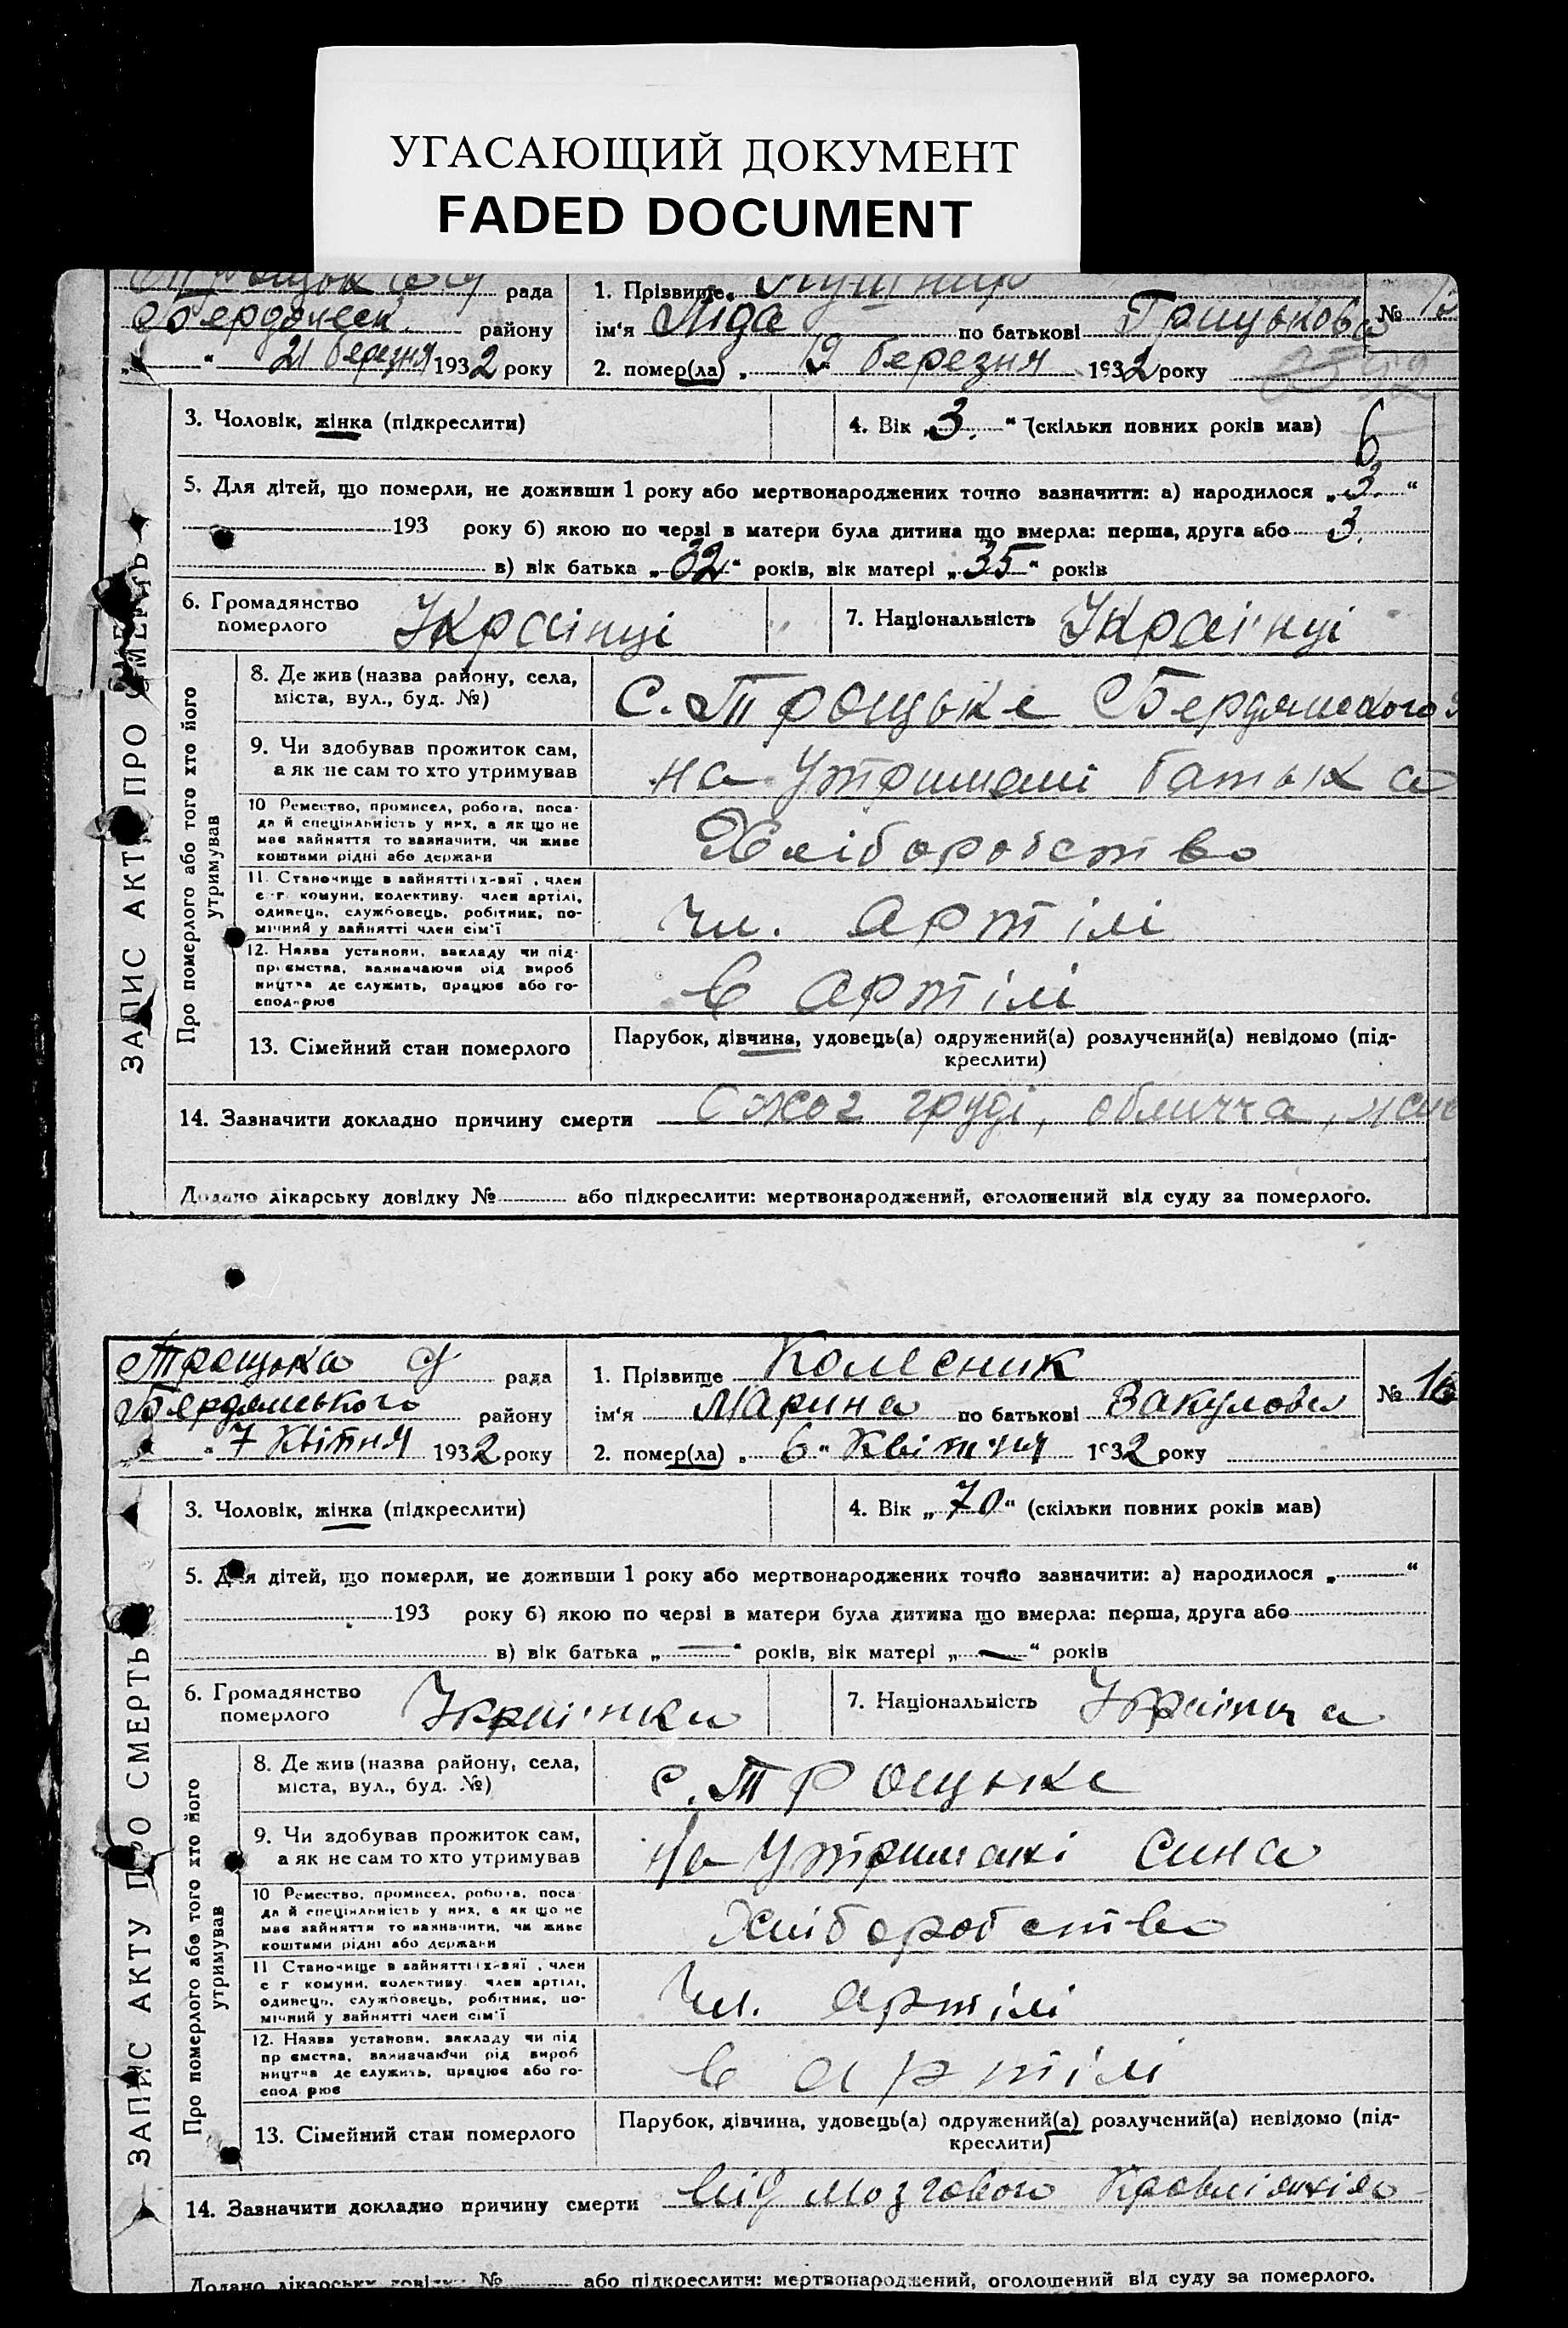 УГАСАЮЩИЙ ДОКУМЕНТ
FADED DOCUMENT
рада
1. Прізвище Кушнир
№ 15
Бердянськ району
ім'я Ліда по батькові Грицькова
21 березня 1932 року
2. помер(ла) „ 19 березня 1932 року
3. Чоловік, жінка (підкреслити)
4. Вік „3.“ (скільки повних років мав)
6
5. Для дітей, що померли, не доживши 1 року або мертвонароджених точно зазначити: а) народилося „3.“
193 року б) якою по черзі в матери була дитина що вмерла: перша, друга або 3.
в) вік батька „32“ років, вік матері „35“ років
6. Громадянство
померлого
Українці
7. Національність Українці
ЗАПИС АКТУ ПРО СМЕРТЬ
Про померлого або того хто його
утримував
8. Де жив (назва району, села,
міста, вул., буд. №)
С. Троцьке Бердянського
9. Чи здобував прожиток сам,
а як не сам то хто утримував
на утримані батька
10 Ремество, промисел, робота, поса-
да й спеціяльність у них, а як що не
має зайняття то зазначити, чи живе
коштами рідні або держави
Хліборобство
11. Становище в зайнятті член
комуни, колективу, член артілі,
одинець, службовець, робітник, по-
мічний у зайнятті член сім'ї
Чл. артілі
12. Назва установи, закладу чи під-
приємства, зазначаючи рід вироб
ництва де служить, працює або го-
сподарює
в артілі
13. Сімейний стан померлого
Парубок, дівчина, удовець(а) одружений(а) розлучений(а) невідомо (під-
креслити)
14. Зазначити докладно причину смерти Ожог груді, обличча,
Додано лікарську довідку № або підкреслити: мертвонароджений, оголошений від суду за померлого.
Троцька с/ рада
1. Прізвище Колесник
№ 16
Бердянського району
ім'я Марина по батькові Вакулова
„ “ 7 Квітня 1932 року
2. помер(ла) „ 6 “ Квітня 1932 року
3. Чоловік, жінка (підкреслити)
4. Вік „70“ (скільки повних років мав)
5. Для дітей, що померли, не доживши 1 року або мертвонароджених точно зазначити: а) народилося „ “
193 року б) якою по черзі в матери була дитина що вмерла: перша, друга або
в) вік батька „—“ років, вік матері „—“ років
6. Громадянство
померлого
Українка
7. Національність Українка
ЗАПИС АКТУ ПРО СМЕРТЬ
Про померлого або того хто його
утримував
8. Де жив (назва району, села,
міста, вул., буд. №)
с. Троцьке
9. Чи здобував прожиток сам,
а як не сам то хто утримував
На утримані сина
10 Ремество, промисел, робота, поса
да й спеціяльність у них, а як що не
має зайняття то зазначити, чи живе
коштами рідні або держави
Хліборобство
11 Становище в зайнятті член
комуни, колективу член артілі,
одинець, службовець, робітник, по-
мічний у зайнятті член сім'ї
Чл. артілі
12. Назва установи, закладу чи під
приємства, зазначаючи рід вироб
ництва де служить, працює або го-
сподарює
в артілі
13. Сімейний стан померлого
Парубок, дівчина, удовець(а) одружений(а) розлучений(а) невідомо (під-
креслити)
14. Зазначити докладно причину смерти Від мозгового
Додано лікарську довідку № або підкреслити: мертвонароджений, оголошений від суду за померлого.